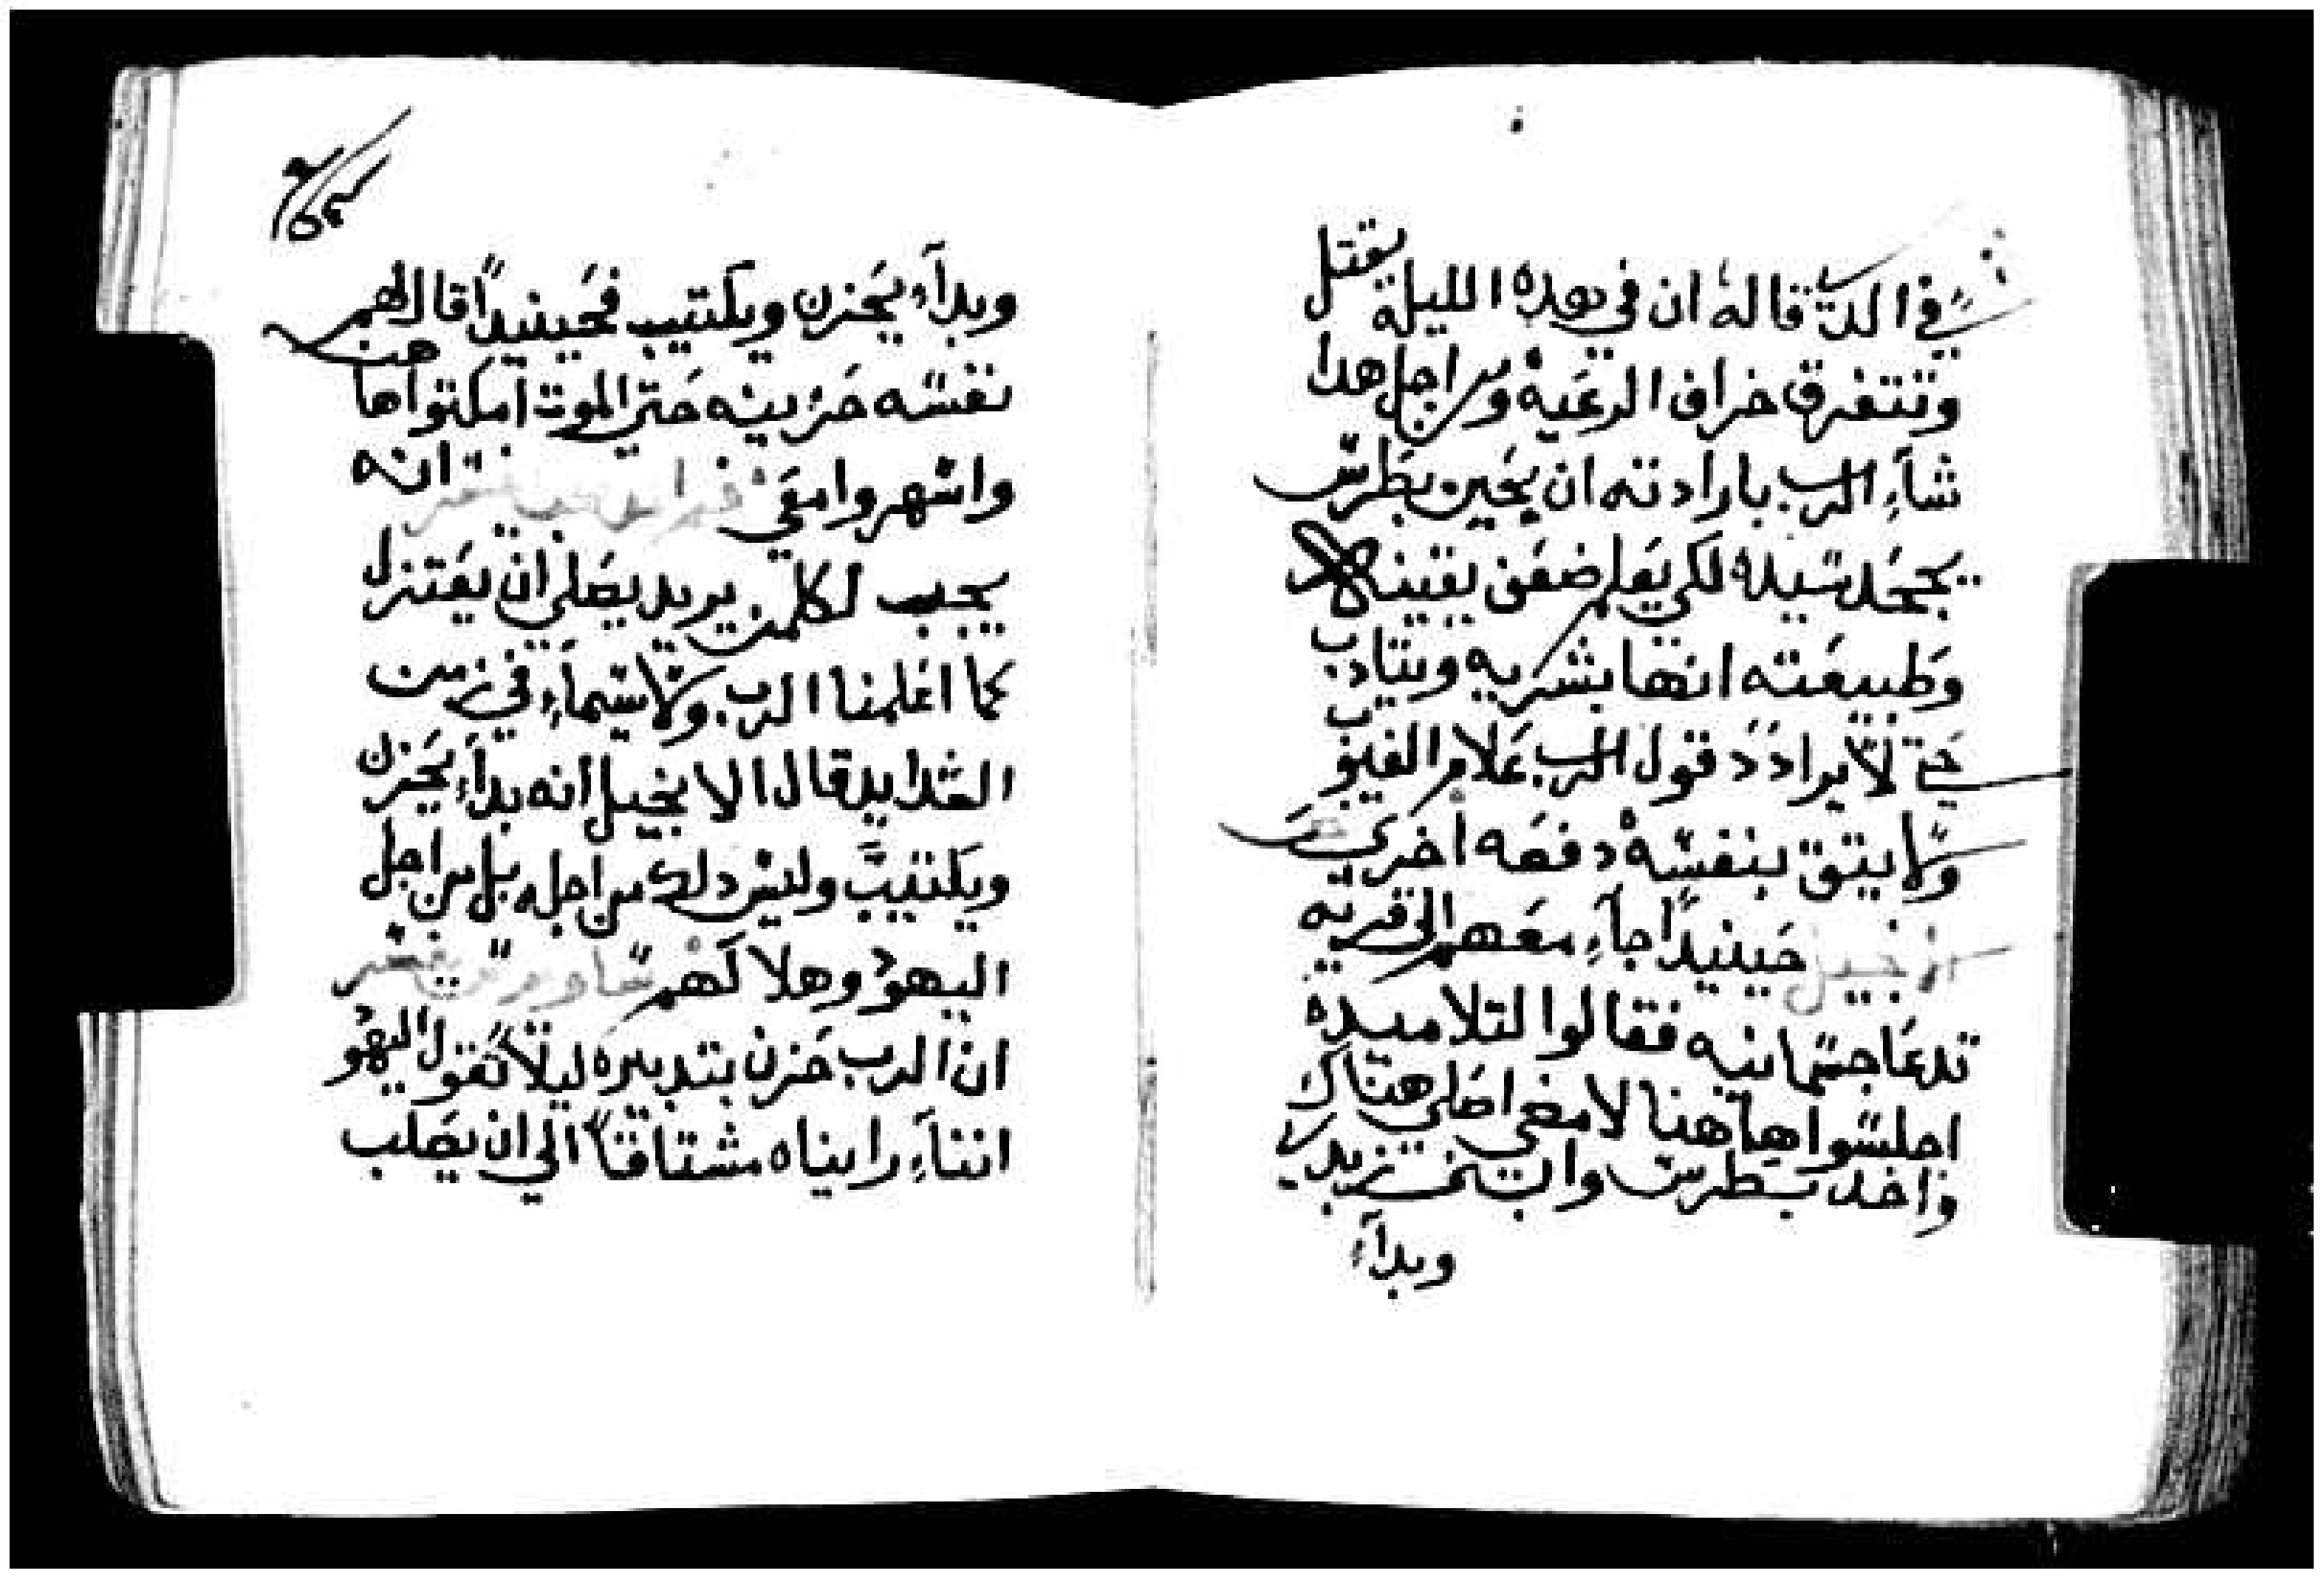 في الدي قاله ان في هده الليلة يقتل
وتتفرق خراف الرعية ومن اجل هدا
شاء الرب بارادته ان يحين بطرس
يجحد سيده لكي يعلم ضعف يقينه
وطبيعته انها بشريه ويتادب
حتي لا يرادد قول الرب علام الغيوب
ولا يتق بنفسه دفعه اخري
الانجيل حينيداً جاء معهم الي قريه
تدعا جتمانيه فقالوا لتلاميده
اجلسوا هاهنا لامضي اصلي هناك
واخد بطرس وابني زبدي
وبداء
وبداء يحزن ويكتيب فحينيداً قال لهم
نفسه حزينه حتي الموت امكتوا هاهنا
واسهروا معي انه
يجب لكلمن يريد يصلي ان يعتزل
كما اعلمنا الرب ولا سيماء في زمن
الشدايد قال الانجيل انه بداء يحزن
ويكتيب وليس دلك من اجله بل من اجل
اليهود وهلاكهم
ان الرب حزن بتدبيره ليلا تقول اليهود
انناء رايناه مشتاقاً الي ان يصلب